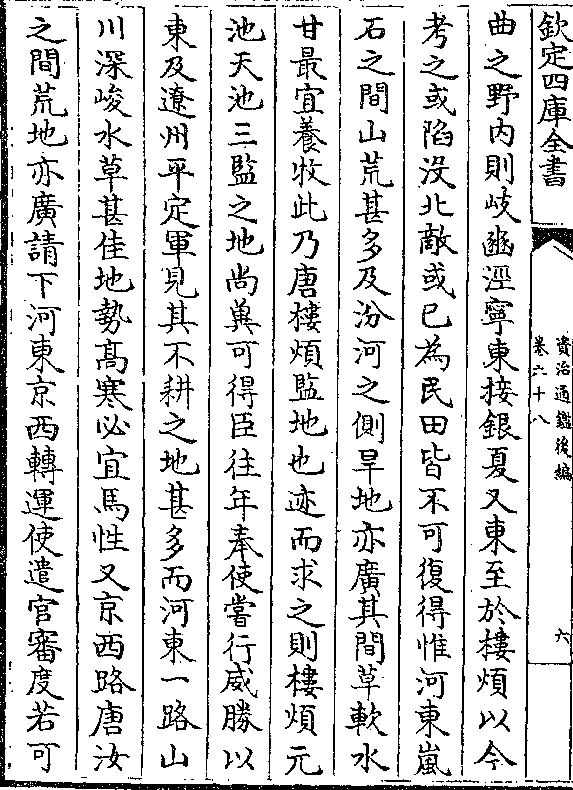 欽定四庫全書
資治通鑑後編
卷六十八
六
曲之野内則岐豳涇寧東接銀夏又東至於樓煩以今
考之或陷没北敵或已為民田皆不可復得惟河東嵐
石之間山荒甚多及汾河之側旱地亦廣其間草軟水
甘最宜養牧此乃唐樓煩監地也迹而求之則樓煩元
池天池三監之地尚冀可得臣往年奉使嘗行威勝以
東及遼州平定軍見其不耕之地甚多而河東一路山
川深峻水草甚佳地勢高寒必宜馬性又京西路唐汝
之間荒地亦廣請下河東京西轉運使遣官審度若可